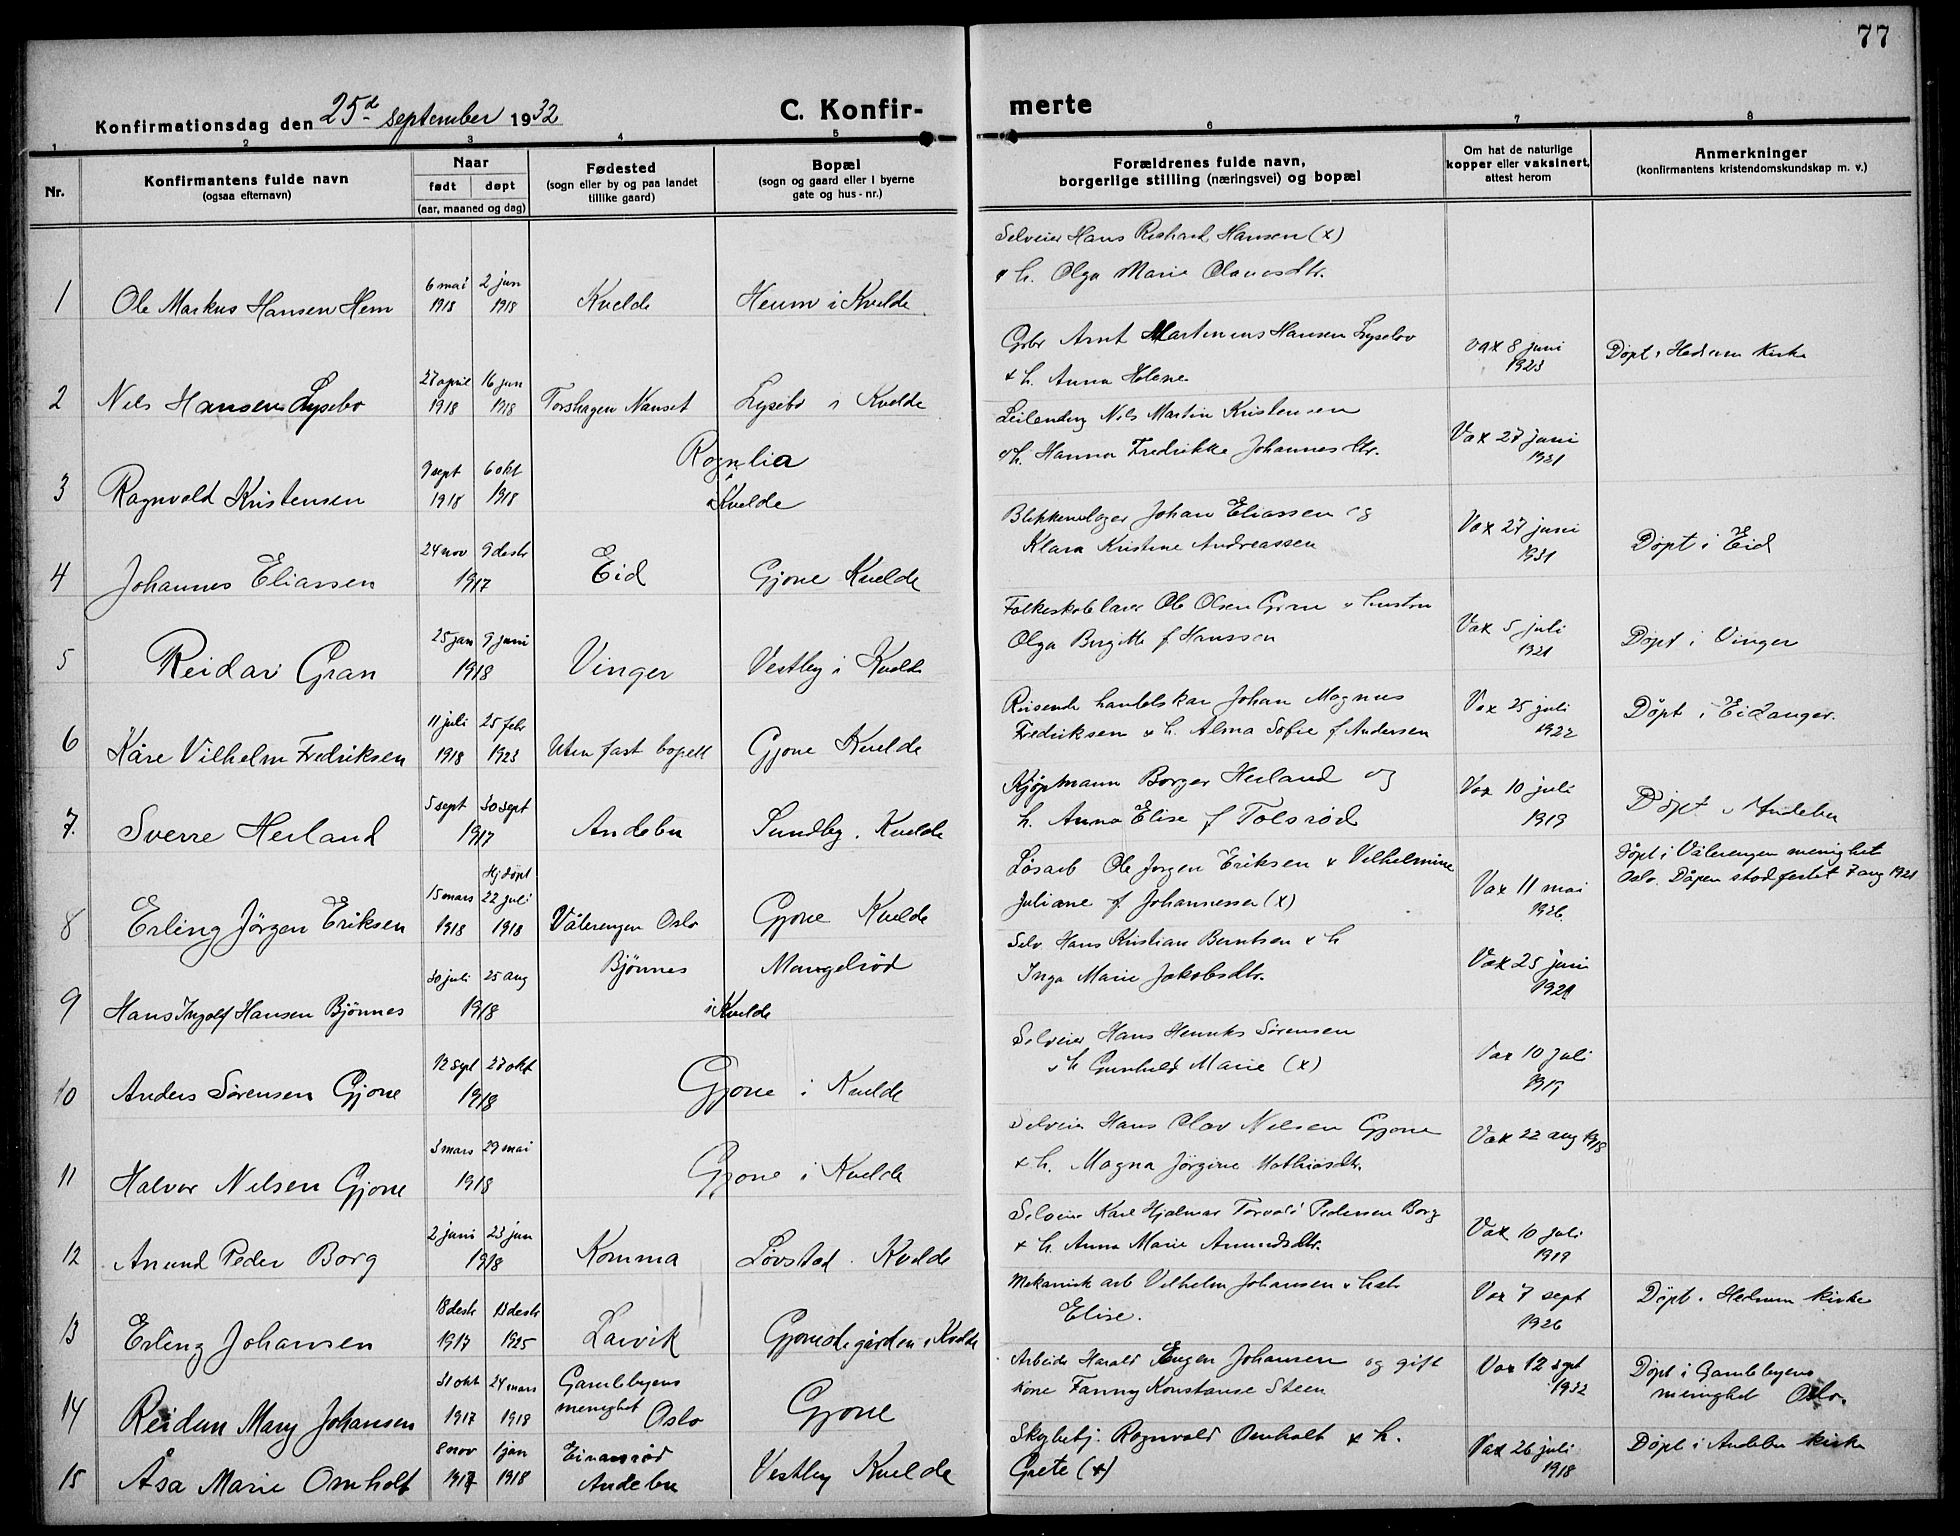 77
Konfirmationsdag den 25d september 1932
C. Konfir-
merte
1 2 3 4 5 6 7 8
Nr.
Konfirmantens fulde navn
(ogsaa efternavn)
Naar
født døpt
(aar, maaned og dag)
Fødested
(sogn eller by og paa landet
tillike gaard)
Bopæl
(sogn og gaard eller i byerne
gate og hus-nr.)
Forældrenes fulde navn,
borgerlige stilling (næringsvei) og bopæl
Om hat de naturlige
kopper eller vaksinert,
attest herom
Anmerkninger
(konfirmantens kristendomskundskap m. v.)
Selveier Hans Richard Hansen (x)
& h. Olga Marie Olausdtr.
1 Ole Markus Hansen Hem 6 mai 1918 2 jun 1918 Kvelde Heum i Kvelde.
Gbr Arnt Martinius Hansen Lysebo
& h. Anna Helene
vax 8 juni
1923
Døpt i Hedrum Kirke
2 Nils Hansen Lysebo 27 april 1918 16 jun 1918 Torshagen Nanset Lysebo i Kvelde
Leilending Nils Martin Kristensen
& h. Hanna Fredrikke Johannesdtr.
Vax 27 juni
1921
3 Ragnvald Kristensen 9 sept 1918 6 okt 1918 Rognlia
i Kvelde
Blikkenslager Johan Eliassen og
Klara Kristine Andreassen
Vax 27 juni
1931
Døpt i Eid
4 Johannes Eliassen 24 nov 9 desbr 1917 Eid Gjone Kvelde
Folkeskolelærer Ole Olsen Gran & hustru
Olga Birgitte f Hanssen
Vax 5 juli
1921
Døpt i Vinger
5 Reidar Gran 25 jan 9 juni 1918 Vinger Vestby i Kvelde
Reisende handelskar Johan Magnus
Fredriksen & h. Alma Sofie f Andersen
Vax 25 juli
1922
Døpt i Eidanger.
6 Kåre Vilhelm Fredriksen 11 juli 1918 25 febr 1923 Uten fast bopell Gjone Kvelde
Kjøpmann Borger Heiland og
h. Anna Elise f Tolsrød
Vax 10 juli
1919
Døpt i Andebu
7. Sverre Heiland 5 sept 30 sept 1917 Andebu Sundby. Kvelde
Løsarb Ole Jørgen Eriksen & Vilhelmine
Juliane f Johannessen (x)
Vax 11 mai
1926.
Døpt i Vålerengen menighet
Oslo. Dåpen stadfestet 7 aug 1921
8 Erling Jörgen Eriksen 15 mars 1918 Hj.døpt 22 juli 1918 Vålerengen Oslo Gjone Kvelde
Selv. Hans Kristian Berntsen & h
Inga Marie Jakobsdtr.
Vax 25 juni
1921
9 Hans Ingolf Hansen Bjönnes 30 juli 25 aug 1918 Bjönnes Mangelsröd
i Kvelde
Selveier Hans Henriks Sörensen
& h Gunhild Marie (x)
Vax 10 juli
1919
10 Anders Sörensen Gjone 12 sept 27 okt 1918 Gjone i Kvelde
Selveier Hans Olav Nilsen Gjone
& h. Magna Jørgine Mathiasdtr.
Vax 22 aug 1918
11 Halvor Nilsen Gjone 3 mars 29 mai 1918 Gjone i Kvelde
Selveier Karl Hjalmar Torvald Pedersen Borg
& h. Anna Marie Amundsdtr.
Vax 10 juli
1919
12 Anund Peder Borg 2 juni 23 jun 1918 Komma Løvstad. Kvelde
Mekanisk arb Vilhelm Johansen &
Elise.
Vax 7 sept
1926
Döpt i Hedrum kirke
13 Erling Johansen 18 desbr 1917 13 desbr 1925 Larvik Gjonedegården i Kvelde
Arbeider Harald Eugen Johansen og gift
kone Fanny Konstanse Steen
Vax 12 sept
1932
Døpt i Gamlebyens
menighet Oslo.
14 Reidun Mary Johansen 31 okt 1917 24 mars 1918 Gamlebyens
menighet Oslo Gjone
Ragnvald Omholt & h.
Grete (x)
Vax 26 juli
1918
Døpt i Andebu kirke
15 Åsa Marie Omholt 8 nov 1917 1 jan 1918 Einarsrød
Andebu Vestby Kvelde